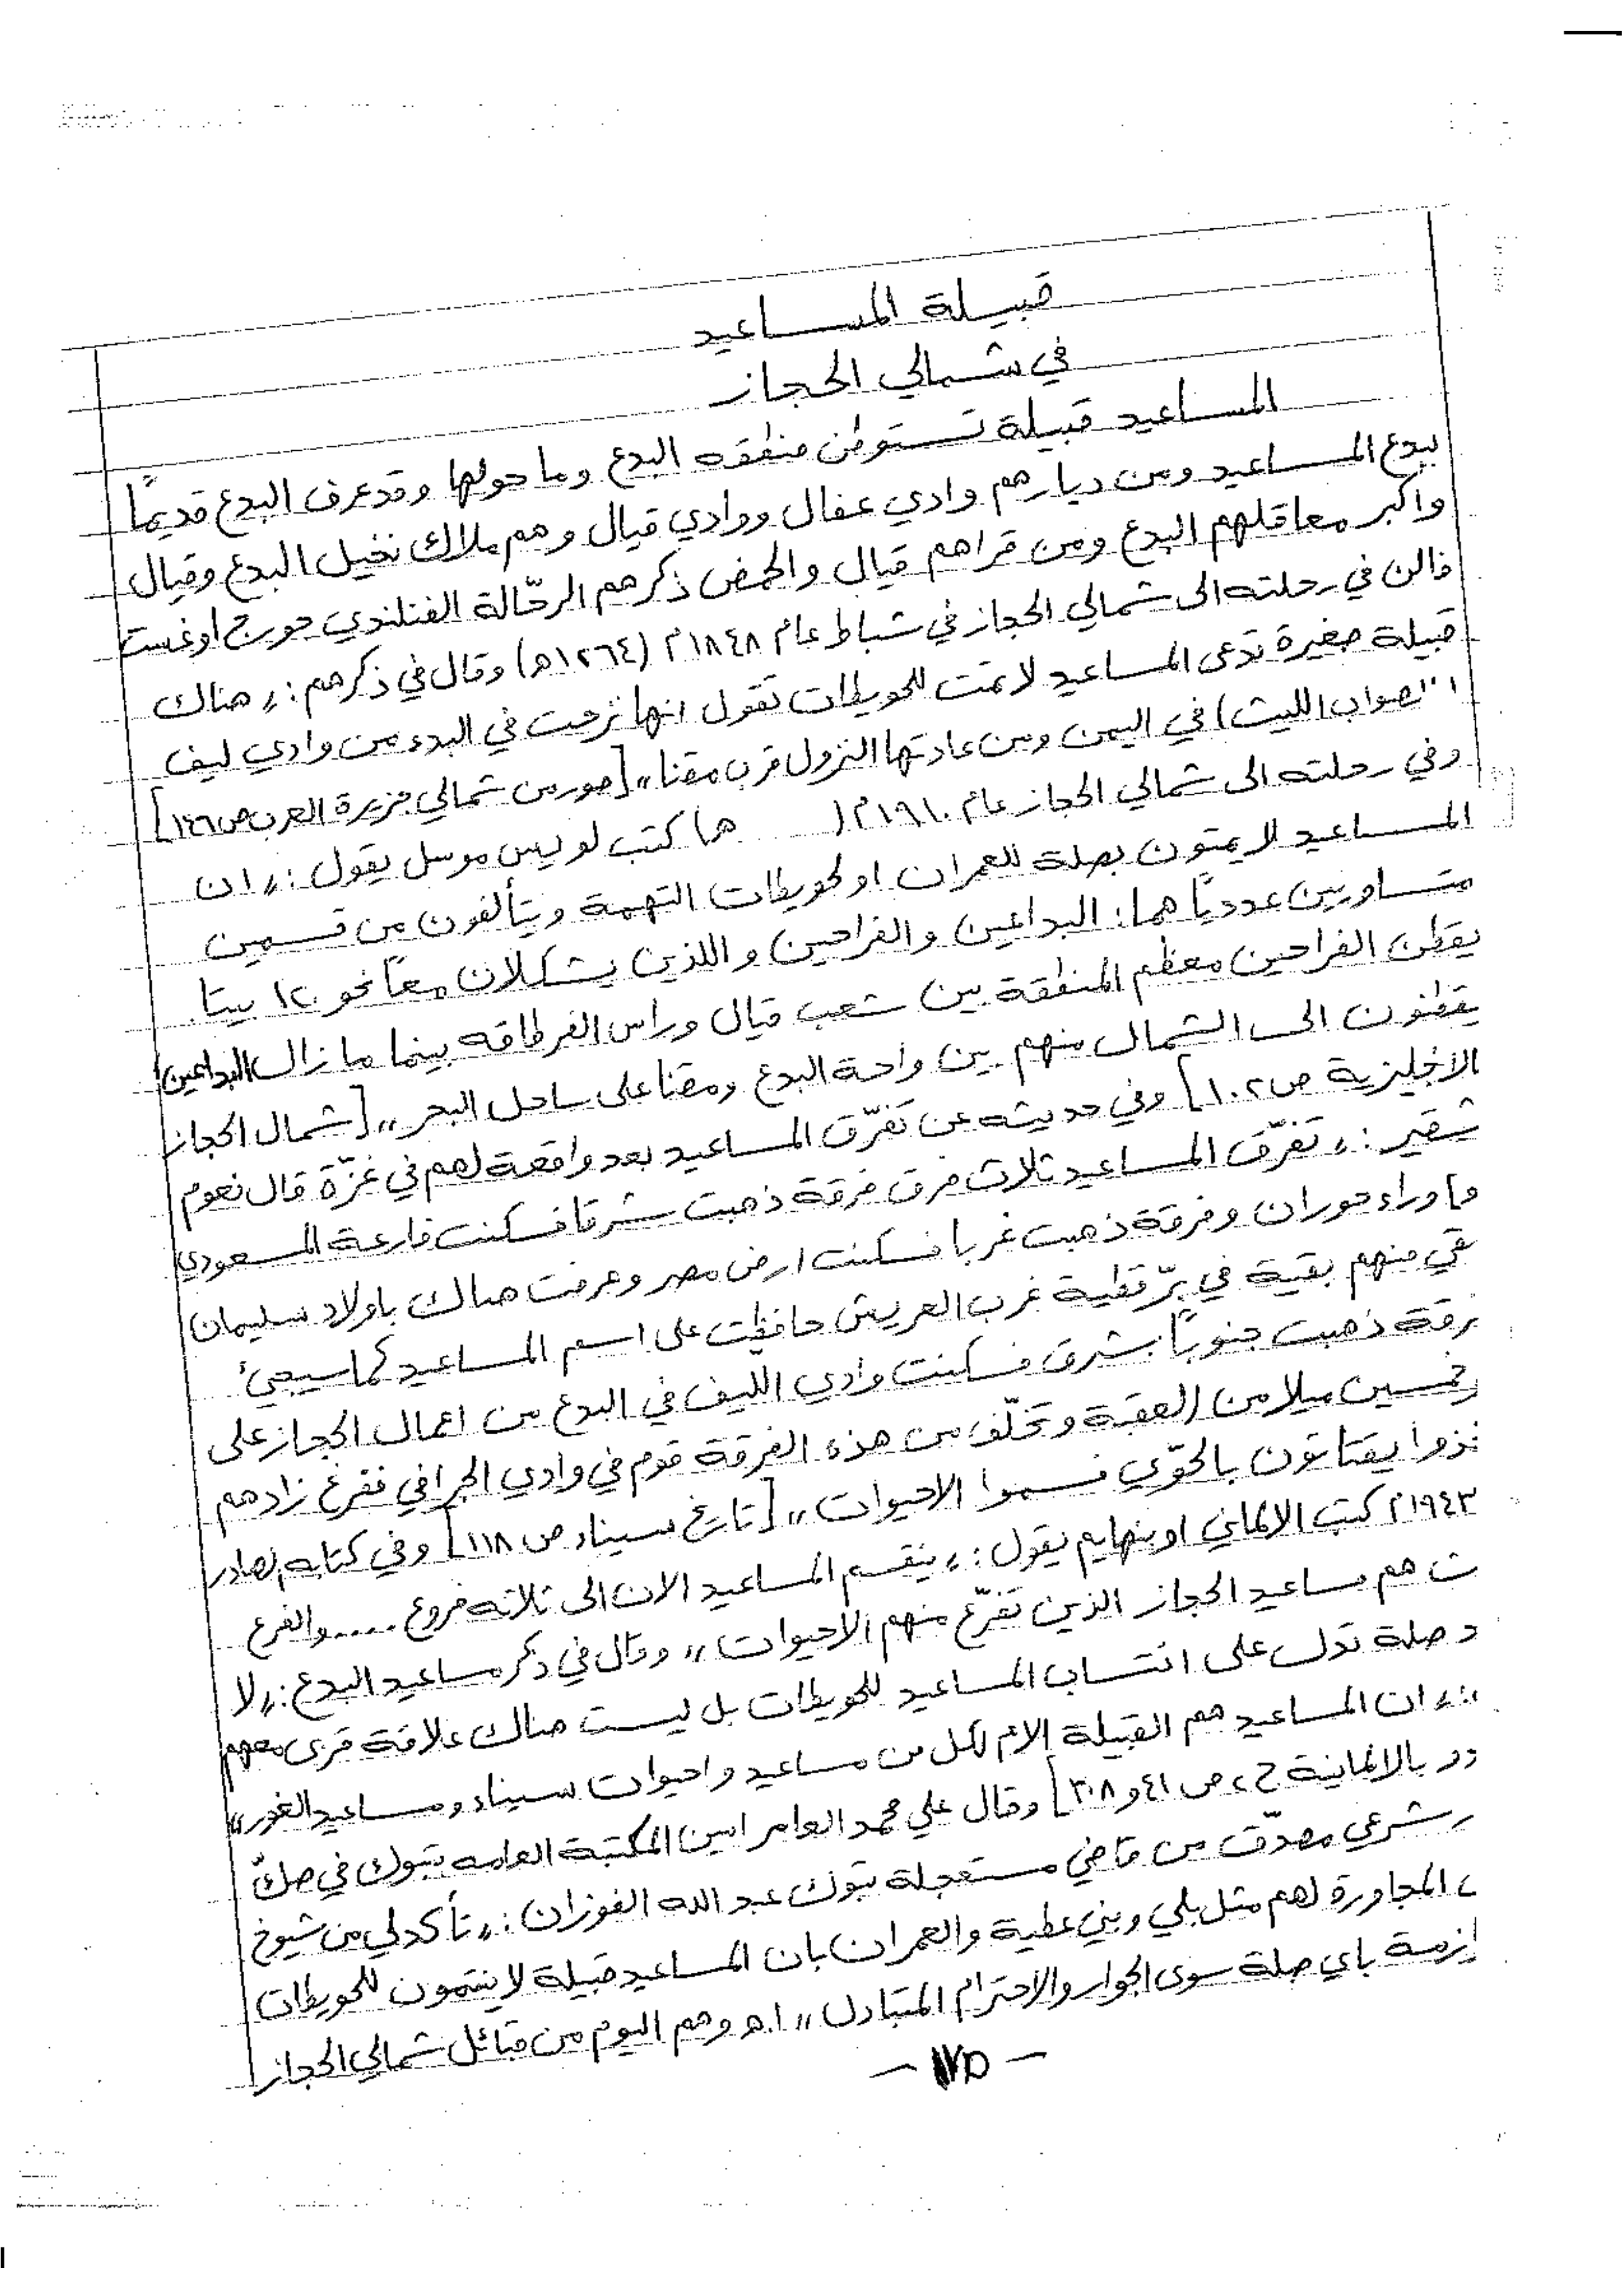 قبيلة المساعيد
في شمالي الحجاز
المساعيد قبيلة تستوطن منطقه البدع وما حولها وقد عرف البدع قديمًا
ببدع المساعيد ومن ديارهم وادي عفال ووادي قيال وهم ملاك نخيل البدع وقيال
واكبر معاقلهم البدع ومن قراهم قيال والحمض ذكرهم الرحّالة الفنلندي جورج اوغست
فالن في رحلته الى شمالي الحجاز في شباط عام ١٨٤٨م (١٢٦٤ه) وقال في ذكرهم: ,, هناك
قبيلة صغيرة تدعى المساعيد لا تمت للحويطات تقول انها نزحت في البدء من وادي ليف
الصواب الليث) في اليمن ومن عادتها النزول قرب مقنا,, [صور من شمالي جزيرة العرب ص ١٤٦]
وفي رحلته الى شمالي الحجاز عام ١٩١٠م ( ه) كتب لويس موسل يقول: ,, ان
المساعيد لا يمتون بصلة للعمران او لحويطات التهمة ويتألفون من قسمين
متساويين عدديًا هما: البداعين والفراحين واللذين يشكلان معًا نحو ١٢٠ بيتا.
يقطن الفراحين معظم المنطقة بين شعب قيال وراس الفرطاقه بينما ما زال البداعين
يقطنون الى الشمال منهم بين واحة البدع ومقنا على ساحل البحر,, [شمال الحجاز
الانجليزية ص ١٠٢] وفي حديثه عن تفرّق المساعيد بعد واقعة لهم في غزّة قال نعوم
شقير: ,, تفرّق المساعيد ثلاث فرق فرقة ذهبت شرقا فسكنت فارعة المسعودي
وما وراء حوران وفرقة ذهبت غربا فسكنت ارض مصر وعرفت هناك باولاد سليمان
قي منهم بقية في برّ قطية غرب العريش حافظت على اسم المساعيد كما سيجيء
رقة ذهبت جنوبًا بشرق فسكنت وادي الليف في البدع من اعمال الحجاز على
خمسين ميلا من العقبة وتخلّف من هذه الفرقة قوم في وادي الجرافي ففرغ زادهم
خذوا يقتاتون بالحوّي فسموا الاحيوات,, [تاريخ سيناء ص ١١٨] وفي كتابه الصادر
١٩٤٣م كتب الالماني اوبنهايم يقول: ,, ينقسم المساعيد الان الى ثلاثه فروع ..... والفرع
ث هم مساعيد الحجاز الذين تفرّع منهم الاحيوات,, وقال في ذكر مساعيد البدع: ,, لا
د صلة تدل على انتساب المساعيد للحويطات بل ليست هناك علاقة قربى معهم
,, ان المساعيد هم القبيلة الام لكل من مساعيد واحيوات سيناء ومساعيد الغور,,
دو بالالمانية ج٢ ص ٤١ و ٣٠٨] وقال علي محمد العامر امين المكتبة العامه بتبوك في صكّ
ر شرعي مصدّق من قاضي مستعجلة تبوك عبد الله الفوزان: ,, تأكد لي من شيوخ
المجاورة لهم مثل بلي وبني عطية والعمران بان المساعيد قبيلة لا ينتمون للحويطات
زمة باي صلة سوى الجوار والاحترام المتبادل,, ا.ه وهم اليوم من قبائل شمالي الحجاز